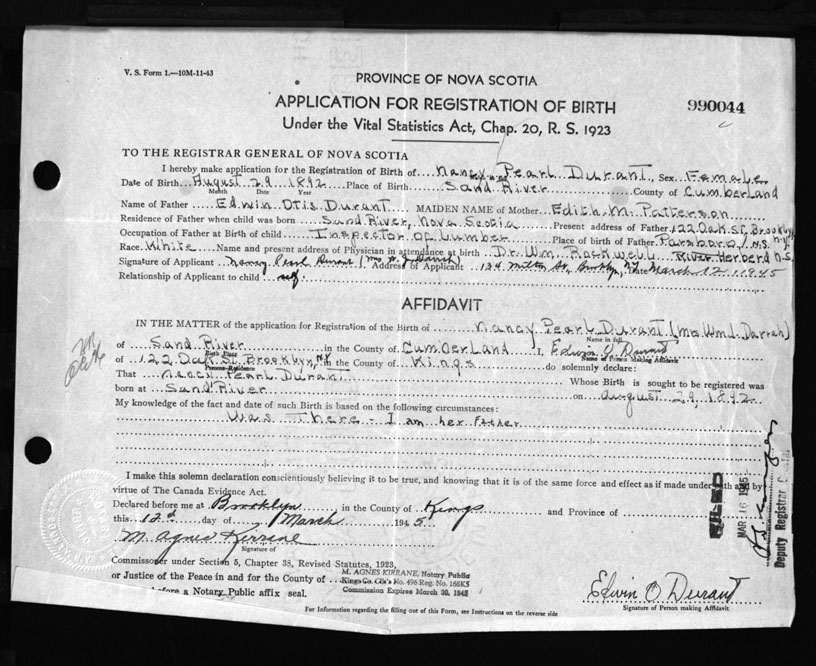 V. S. Form 1.—10M-11-43
PROVINCE OF NOVA SCOTIA
APPLICATION FOR REGISTRATION OF BIRTH
990044
Under the Vital Statistics Act, Chap. 20, R. S. 1923
TO THE REGISTRAR GENERAL OF NOVA SCOTIA
I hereby make application for the Registration of Birth of Nancy Pearl Durant, Sex Female
Date of Birth August 29 1892 Place of Birth Sand River County of Cumberland
Month Date Year
Name of Father Edwin Otis Durant MAIDEN NAME of Mother Edith M. Patterson
Residence of Father when child was born Sand River, Nova Scotia Present address of Father 122 Oak St. Brooklyn N.Y.
Occupation of Father at Birth of child Inspector of Lumber Place of birth of Father Parsboro, N.S.
Race White Name and present address of Physician in attendance at birth Dr. Wm. Rockwell River Herberd N.S.
Signature of Applicant Nancy Pearl Durant (Mrs W. J. Address of Applicant 134 Milton St, Brooklyn, N.Y. Date March 12 1945
Relationship of Applicant to child self
AFFIDAVIT
IN THE MATTER of the application for Registration of the Birth of Nancy Pearl Durant (Mrs Wm. J. Darrah)
Name in full
of Sand River in the County of Cumberland I, Edwin O. Durant
Birth Place
Name of Person Making Affidavit
of 122 Oak St. Brooklyn, N.Y. in the County of Kings do solemnly declare:
Present Residence
That Pearl Durant Whose Birth is sought to be registered was
born at Sand River on August 29, 1892
My knowledge of the fact and date of such Birth is based on the following circumstances:
Was There - I am her Father
I make this solemn declaration conscientiously believing it to be true, and knowing that it is of the same force and effect as if made under oath and by
virtue of The Canada Evidence Act.
Declared before me at Brooklyn in the County of Kings and Province of
this 12th day of March 1945
M. Agnes Kirrane
Signature of
Commissioner under Section 5, Chapter 38, Revised Statutes, 1923,
or Justice of the Peace in and for the County of
before a Notary Public affix seal.
M. AGNES KIRRANE, Notary Public
Kings Co. Clk's No. 496 Reg. No. 166K5
Commission Expires March 30, 1945
Edwin O Durant
Signature of Person making Affidavit
For Information regarding the filling out of this Form, see Instructions on the reverse side
FILED
MAR 16 1945
Deputy Registrar